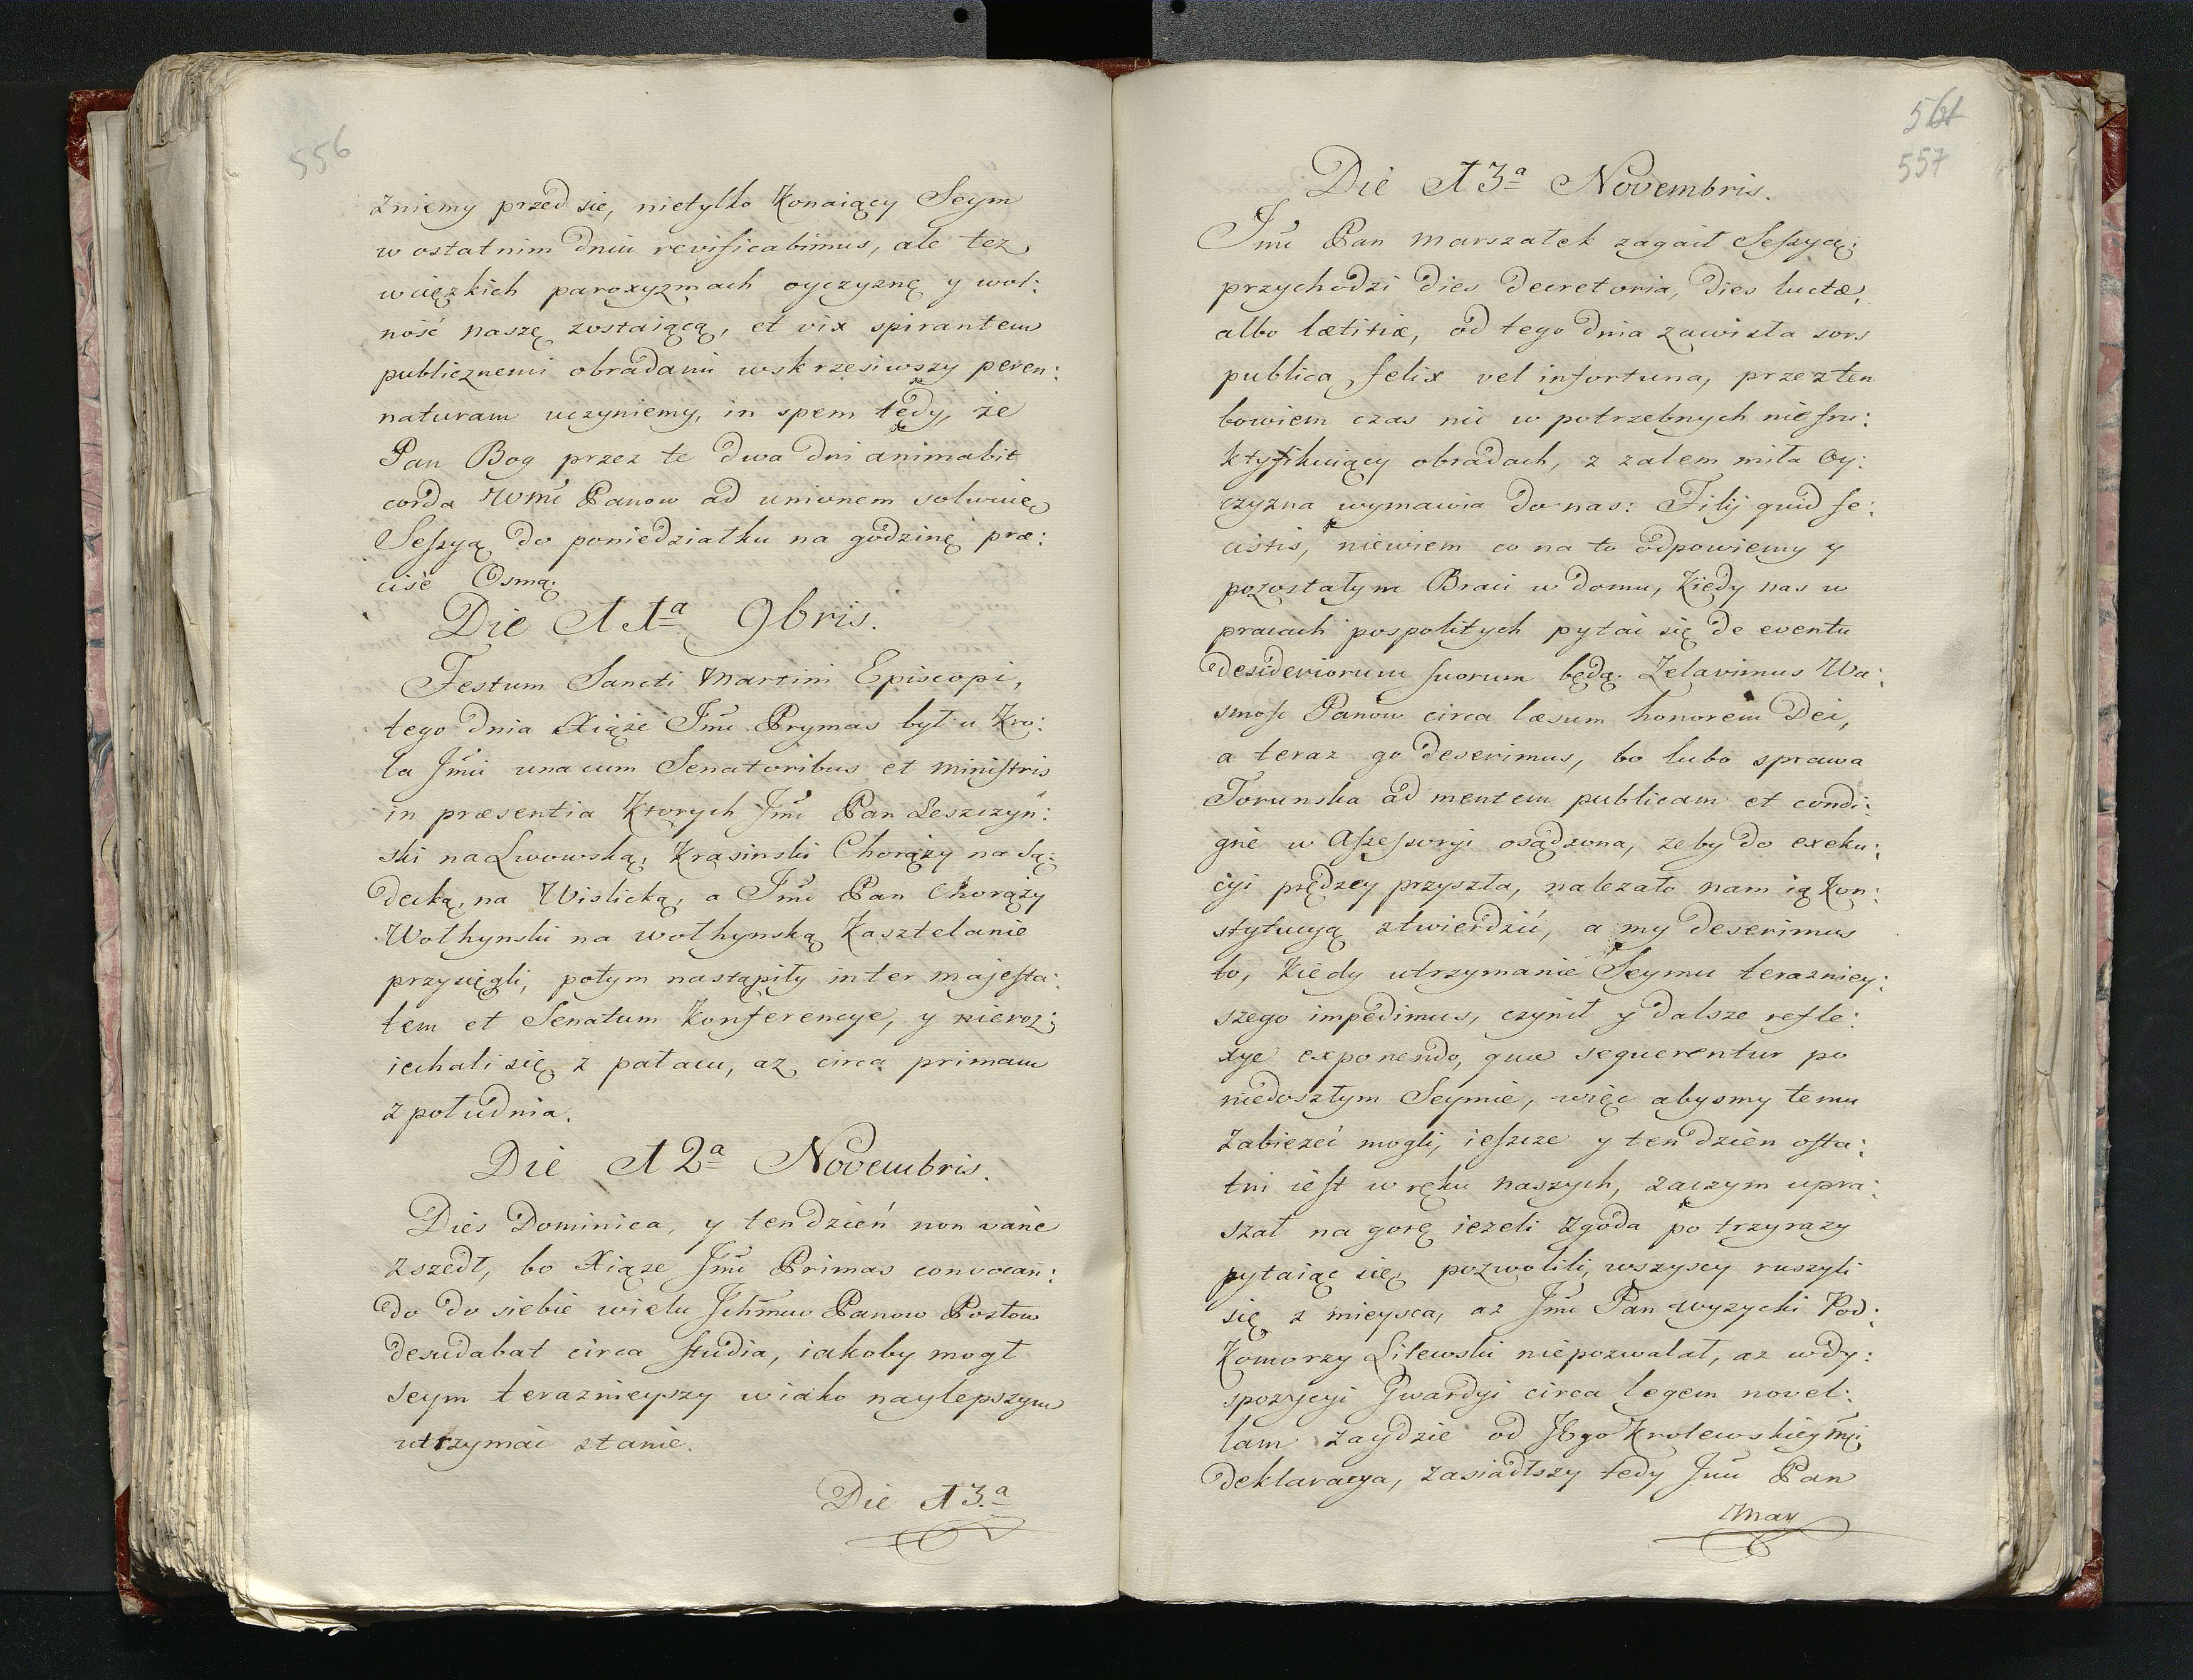 556
żniemy przed sie, nietylko Konaiący Seym
w ostatnim dniu revificabimus, ale tez
w cięzkich paroxyzmach oyczyznę y wol:
ność naszę zostaiącą, et vix spirantem
publicznemi obradami wskrzesiwszy peren:
naturam uczyniemy, in spem tedy, że
Pan Bog przez te dwa dni animabit
corda Wmć Panow ad unionem solwuię
Sessyą do poniedziałku na godzinę præ:
cise Osmą.
Die 11ª 9bris.
Festum Sancti Martini Episcopi,
tego dnia Xiąże Jmć Prymas był u Kro:
la Jmći una cum Senatoribus et ministris
in præsentia Ktorych Jmć Pan Leszczyń:
ski na Lwowską, Krasinski Chorąży na Są:
decką, na Wislicką, a Jmć Pan Chorąży
Wołhynski na wołhynską Kasztelanie
przysięgli, potym nastąpiły inter majesta:
tem et Senatum Konferencye, y nieroz:
iechali się z pałacu, aż circa primam
z południa.
Die 12ª Novembris.
Dies Dominica, y ten dzień non vane
zszedł, bo Xiąze Jmć Primas convocan:
do do siebie wielu Ichmciow Panow Posłow
desudabat circa studia, iakoby mogł
seym teraznieyszy w iako naylepszym
utrzymać stanie.
Die 13.ª
561
557
Die 13ª Novembris.
Jmć Pan marszałek zagaił Sessyą;
przychodzi dies decretoria, dies luctæ,
albo lætitiæ, od tego dnia zawisła sors
publica felix vel infortuna, przez ten
bowiem czas nic w potrzebnych nie fru:
ktyfikuiący obradach, z zalem miła Oy:
czyzna wymawia do nas: Filij quid fe:
cistis, niewiem co na to odpowiemy y
pozostałym Braci w domu, kiedy nas w
pracach pospolitych pytać się de eventu
desideriorum suorum będą. Zelavimus Wa:
smosc Panow circa læsum honorem Dei,
a teraz go deserimus, bo lubo sprawa
Torunska ad mentem publicam et condi:
gne w Assessoryi osądzona, zeby do exeku:
cyi prędzey przyszła, nalezało nam ią Kon:
stytucyą ztwierdzić, a my deserimus
to, kiedy utrzymanie Seymu terazniey:
szego impedimus, czynił y dalsze refle:
xye exponendo, quæ sequerentur po
niedoszłym Seymie, więc abysmy temu
zabiezeć mogli, ieszcze y ten dzień osta:
tni iest w ręku naszych, zaczym upra:
szał na gorę iezeli zgoda po trzy razy
pytaiąc się, pozwolili, wszyscy ruszyli
się z mieysca, az Jmć Pan wyzycki Pod:
komorzy Litewski niepozwalał, az w dy:
spozycyi Gwardyi circa legem novel:
lam zaydzie od JEgo Krolewskiey mći
deklaracya, zasiadłszy tedy Jmć Pan
mar